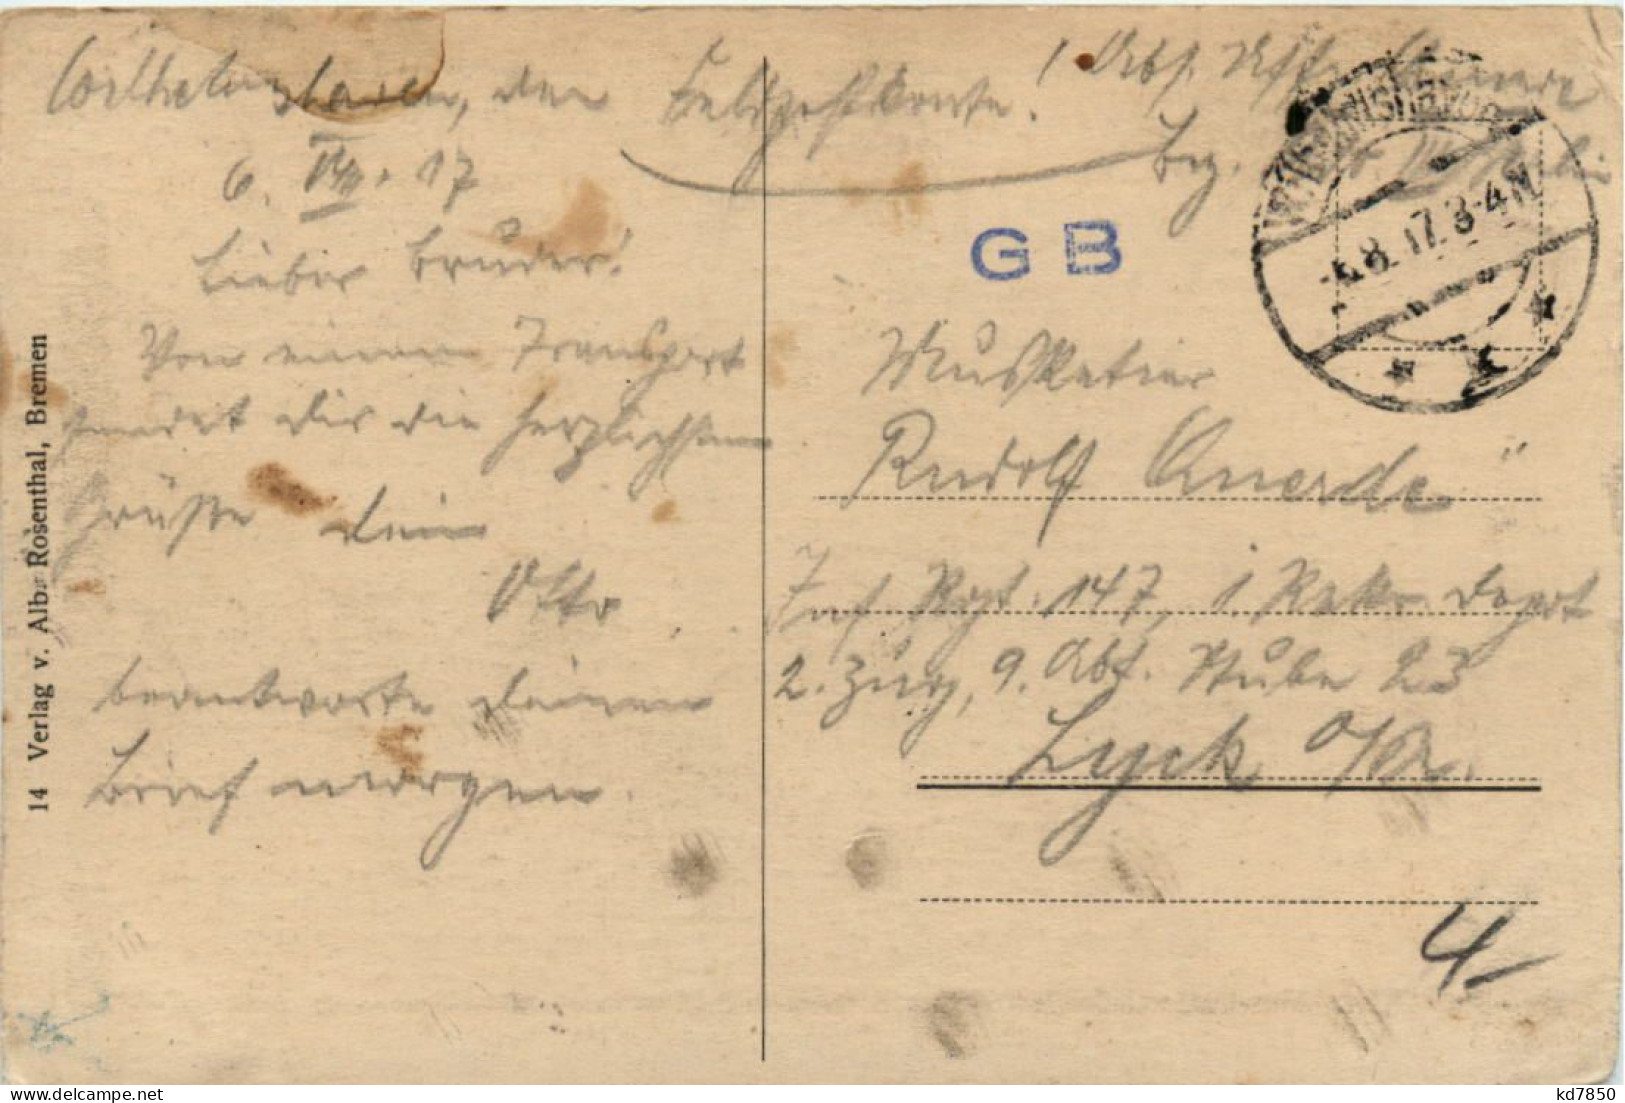 Wilhelmshaven, den
6. VIII. 17
Lieber Bruder!
Von einem Transport
sendet dir die herzlichsten
Grüße dein
Otto
beantworte deinen
Brief morgen.
14 Verlag v. Alb. Rosenthal, Bremen
Feldpostkarte.
Abs.
WILHELMSHAVEN
8.17.3-4N
G B
Musketier
Rudolf
Inf Rgt. 147, 1. Rekr. Depot
2. Zug, 9. Abt. Stube 23
Lyck O/Pr.
4/-
kd7850